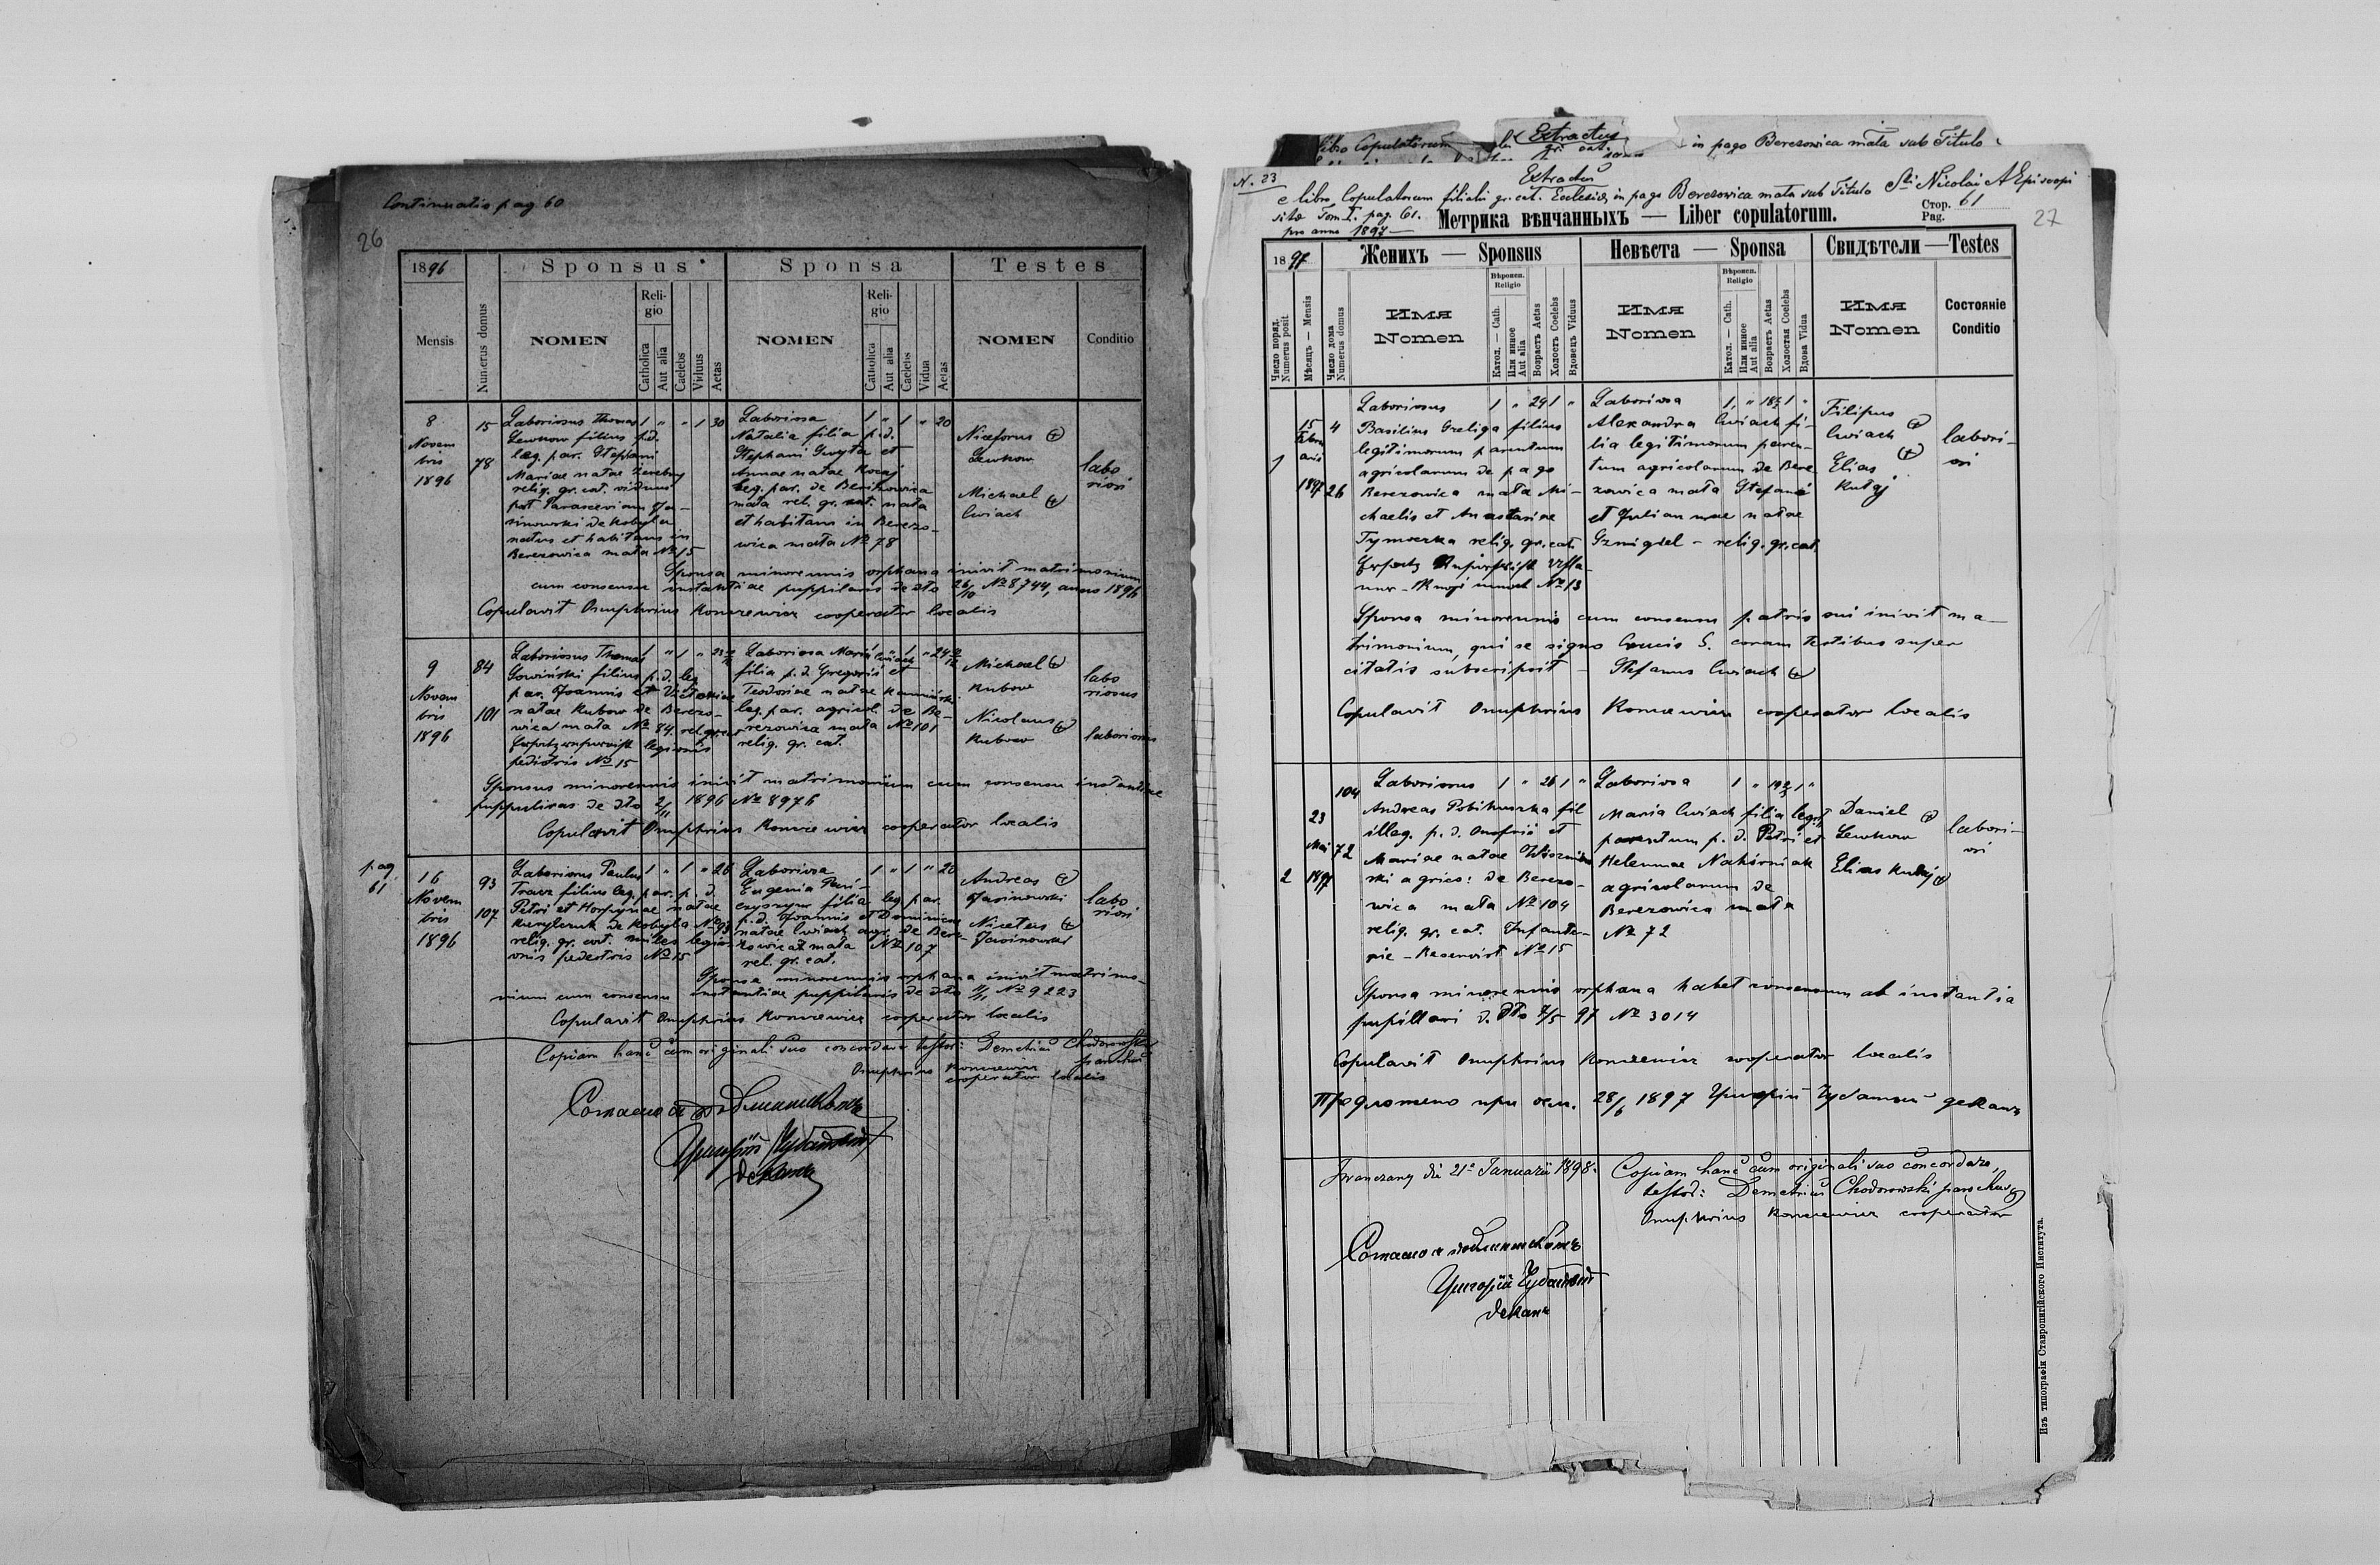 Continuatio pag 60
26
1896
Sponsus
Sponsa
Testes
Mensis
Numerus domus
NOMEN
Religio
Catholica
Aut alia
Caelebs
Viduus
Aetas
NOMEN
Religio
Catholica
Aut alia
Caelebs
Vidua
Aetas
NOMEN
Conditio
8
Novem
bris
1896
15
78
Laboriosus Thomas 1 " " 1 30
Lewkow filius p.d.
leg. par. Stephani
Mariae natae
relig. gr. cat. viduus
post Parasceviam Ja-
sinowski de Kobyla
natus et habitans in
Berezowica mała № 15
Laboriosa 1 " 1 " 20
Natalia filia p.d.
Stephani et
Annae natae
leg. par. de Berezowica
mała rel. gr. cat. nata
et habitans in Berezo-
wica mała № 78
Niceforus
Lewkow
Michael
Cwiach
labo
riosi
Sponsa minorennis orphana inivit matrimonium
cum consensu instantiae puppilaris de dto 26/10 № 8744, anno 1896
Copulavit Onuphrius Konczewicz cooperator localis
9
Novem
bris
1896
84
101
Laboriosus Thomas 1 " 1 "
filius p.d. leg.
par. Joannis et
natae Kubow de Berezo-
wica mała № 84. rel. gr. cat
legionis
pedistris № 15
Laboriosa Maria Cwiach 1 " 1 "
filia p.d. Gregorii et
Teodoriae natae Kaminski
leg. par. agricol. de Be-
rezowica mała № 101
relig. gr. cat.
Michael
Kubow
Nicolaus
Kubow
labo
riosus
laboriosus
Sponsus minorennis inivit matrimonium cum consensu instantiae
puppilaris de dto 2/11 1896 № 8976
Copulavit Onuphrius Konczewicz cooperator localis
pag
61
16
Novem
bris
1896
93
107
Laboriosus Paulus 1 " 1 " 26
Tracz filius leg. par. p. d.
Petri et Horpynae natae
de Kobyla № 93
relig. gr. cat. miles legi-
onis pedestris № 15
Laboriosa 1 " 1 " 20
Eugenia
filia leg par.
p.d. Joannis et Dominicae
natae Cwiach agr. de Bere-
zowica mała № 107
rel. gr. cat.
Andreas
Jasinowski
Nicetas
Jasinowski
labo
riosi
Sponsa minorennis orphana inivit matrimo-
nium cum consensu instantiae puppilaris de dto № 9223
Copulavit Onuphrius Konczewicz cooperator localis
Copiam hanc cum originali suo concordare testor: Demetrius Chodorowski
parochus
Onuphrius Konczewicz
cooperator localis
Согласно съ подлинникомъ
Григорій
деканъ
Extractus
in pago Berezowica mała sub Titulo
N. 23
Extractus
e libro Copulatorum filialis gr. cat. Ecclesiae in pago Berezowica mała sub Titulo Sti Nicolai AEpiscopi
sitae Tom I. pag. 61.
pro anno 1897
Метрика вѣнчанныхъ — Liber copulatorum.
Стор. 61
Pag.
27
1897
Женихъ — Sponsus
Невѣста — Sponsa
Свидѣтели — Testes
Число поряд.
Numerus posit.
Мѣсяцъ — Mensis
Число дома
Numerus domus
Имя
Nomen
Вѣроисп.
Religio
Катол. — Cath.
Или инное
Aut alia
Возрастъ Aetas
Холостъ Coelebs
Вдовецъ Viduus
Имя
Nomen
Вѣроисп.
Religio
Катол. — Cath.
Или инное
Aut alia
Возрастъ Aetas
Холостая Coelebs
Вдова Vidua
Имя
Nomen
Состояніе
Conditio
1
15
1897
4
26
Laboriosus 1 " 29 1 "
Basilius Greliga filius
legitimorum parentum
agricolarum de pago
Berezowica mała Mi-
chaelis et Anastasiae
Tymoczka relig. gr. cat.
№ 13
Laboriosa 1 " 1 "
Alexandra Cwiach fi-
lia legitimorum paren-
tum agricolarum de Bere
zowica mała Stefani
et Juliannae natae
relig. gr. cat.
Filipus
Cwiach
Elias
Kulaj
labori-
osi
Sponsa minorennis cum consensu patris sui inivit ma-
trimonium, qui se signo Crucis S. coram testibus super
citatis subscripsit — Stefanus Cwiach
Copulavit Onuphrius Konczewicz cooperator localis
2
23
Mai
1897
104
72
Laboriosus 1 " 26 1 "
Andreas fil
illeg. p. d. Onufrii et
Mariae natae
ski agric: de Berezo-
wica mała № 104
relig. gr. cat. Infante-
rie - Reservist № 15
Laboriosa 1 " 1 "
Maria Cwiach filia legit
parentum p. d. Petri et
Helennae Nahirniak
agricolarum de
Berezowica mała
№ 72
Daniel
Lewkow
Elias Kulaj
labori-
osi
Sponsa minorennis orphana habet consensum ab instantia
pupillari d. dto 7/5 97 № 3014
Copulavit Onuphrius Konczewicz cooperator localis
Предложено при 28/6 1897 Григорій деканъ
Iwanczany die 21a Januarii 1898.
Copiam hanc cum originali suo concordare,
testor: Demetrius Chodorowski parochus
Onuphrius Konczewicz cooperator
Согласно съ подлинникомъ
Григорій
деканъ
Изъ типографіи Ставропигійского Института.